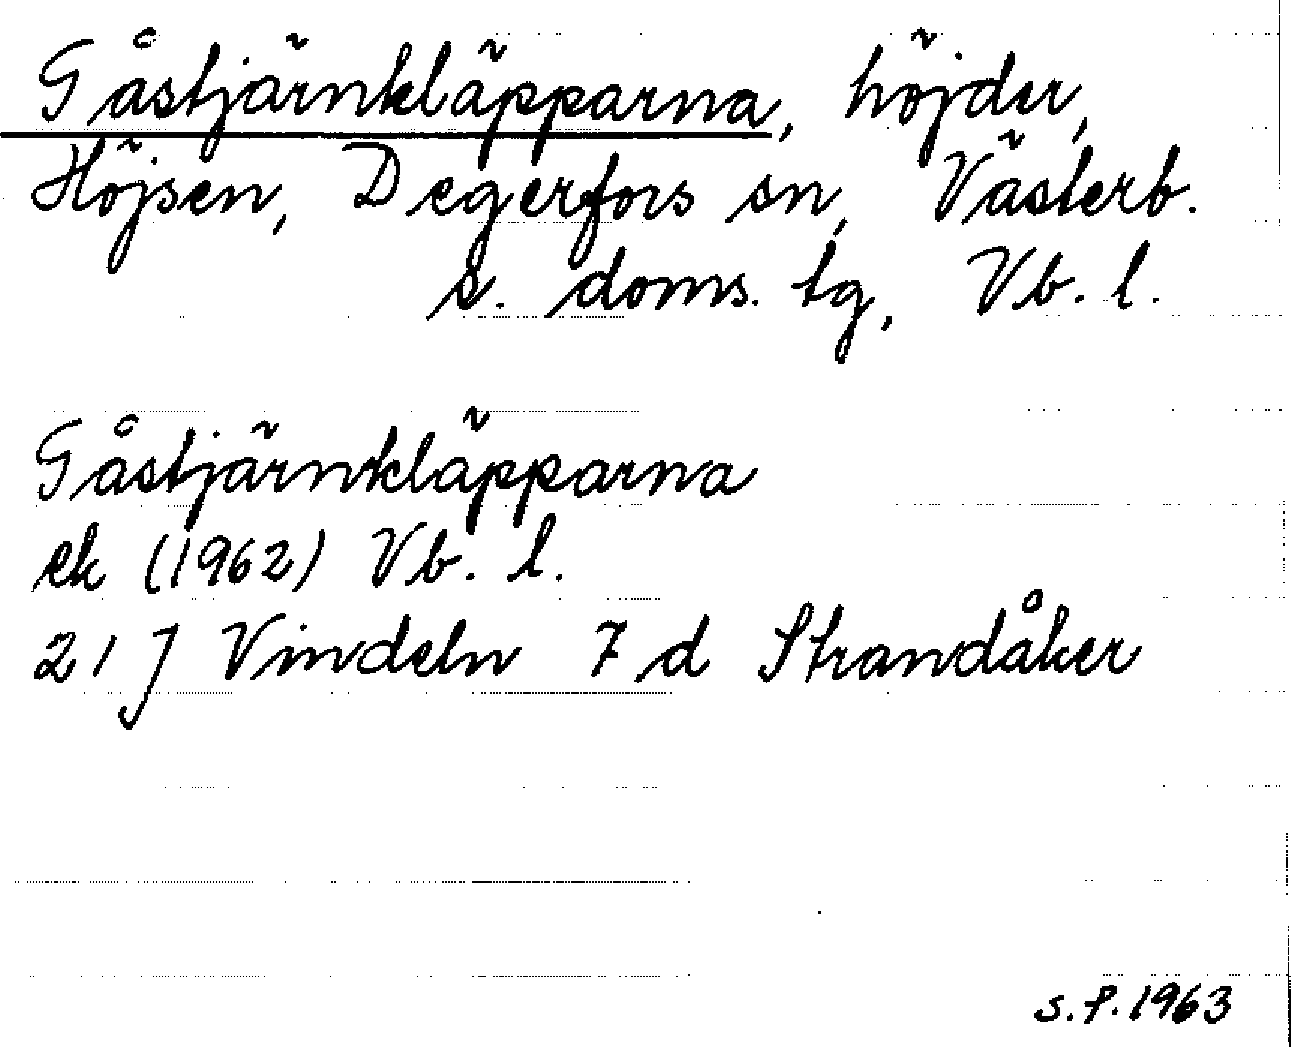 Gåstjärnkläpparna, höjder,
Höjsen, Degerfors sn, Västerb.
s. doms. tg, Vb. l.
Gåstjärnkläpparna
ek (1962) Vb. l.
21 J Vindeln 7 d Strandåker
s.f. 1963